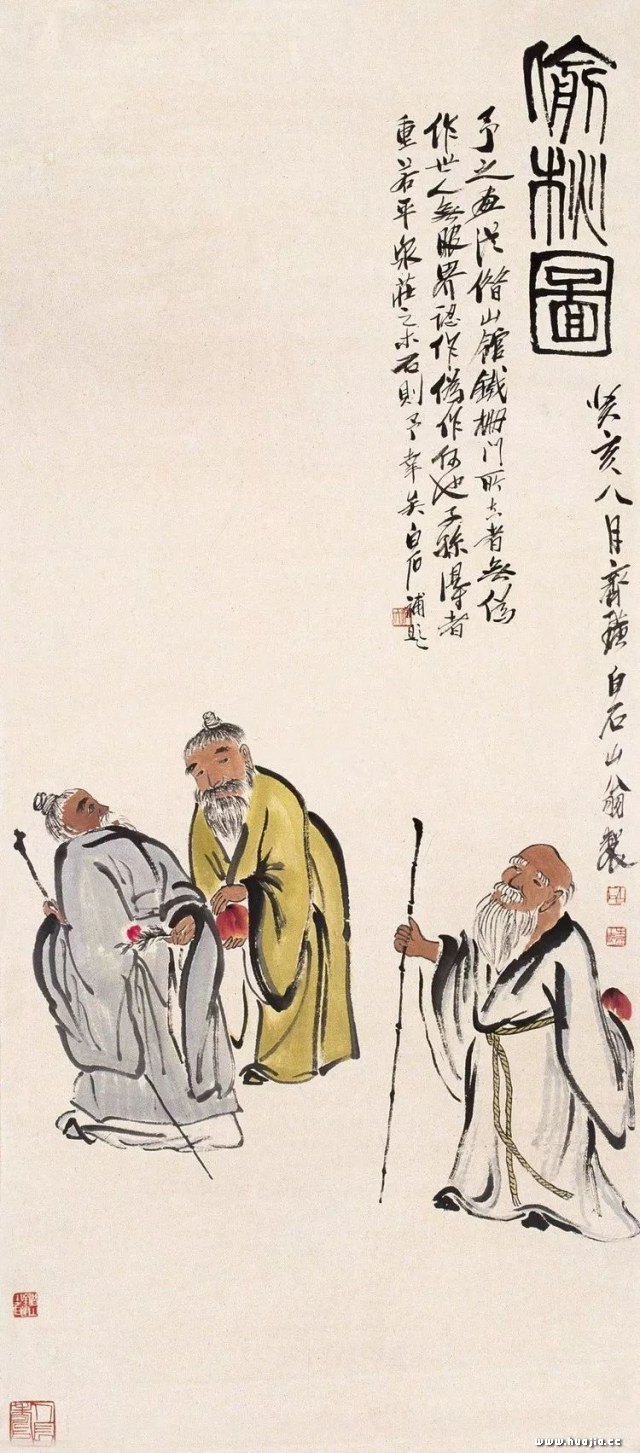 偷桃圖
癸亥八月齊璜白石山翁製
予之畫從借山館鐵柵門所去者無偽
作世人無眼界認作偽作何也子孫得者
重若平泉莊之木石則予幸矣白石補題
www.huajia.cc